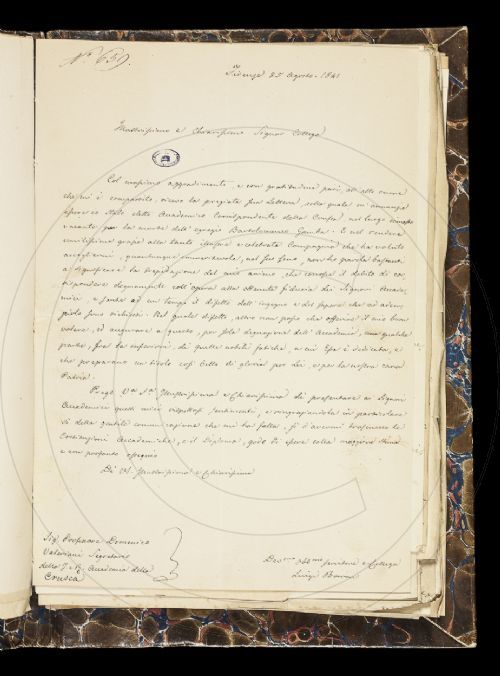 N.° 659.
Firenze 25 Agosto. 1841
Illustrissimo e Chiarissimo Signor Collega
Col massimo aggradimento, e con gratitudine pari, all'alto onore
che mi è compartito, ricevo la pregiata Sua Lettera, nella quale mi annunzia
essere io stato dalla Accademia Corrispondente della Crusca, nel luogo rimasto
vacante per la morte dell'egregio Bartolommeo Gamba. E nel rendere
umilissime grazie alla tanto illustre e celebrata Compagnia che ha voluto
accogliermi, quantunque immeritevole, nel suo seno, non ho parole bastanti
a significare la del mio animo, che conosce il debito di cor
rispondere degnamente coll'opera alla fiducia dei Signori Accade
mici, e sente ad un tempo il difetto dell'ingegno e del sapere che ad adem
pirlo sono richiesti. Nel quale difetto, altro non posso che offerire il mio buon
volere, ed augurare a questo, per sola degnazione dell'Accademia, una qualche
parte, fra le inferiori, di quelle nobili fatiche, a cui Essa è dedicata, e
che preparano un titolo così bello di gloria per Lei, e per la nostra cara
Patria.
Prego V.a S.a Illustrissima e Chiarissima di presentare ai Signori
Accademici questi miei rispettosi sentimenti, e ringraziandola in particolare
di della gentile communicazione che mi ha fatta, e d'avermi trasmesse le
Costituzioni Accademiche, e il Diploma, godo di essere colla maggiore stima
e con profondo ossequio
Di V.S. Illustrissima e Chiarissima
Sig. Professore Domenico
Valeriani Segretario
della I. e R. Accademia della
Crusca
Dev.mo Obb.mo servitore e Collega
Luigi